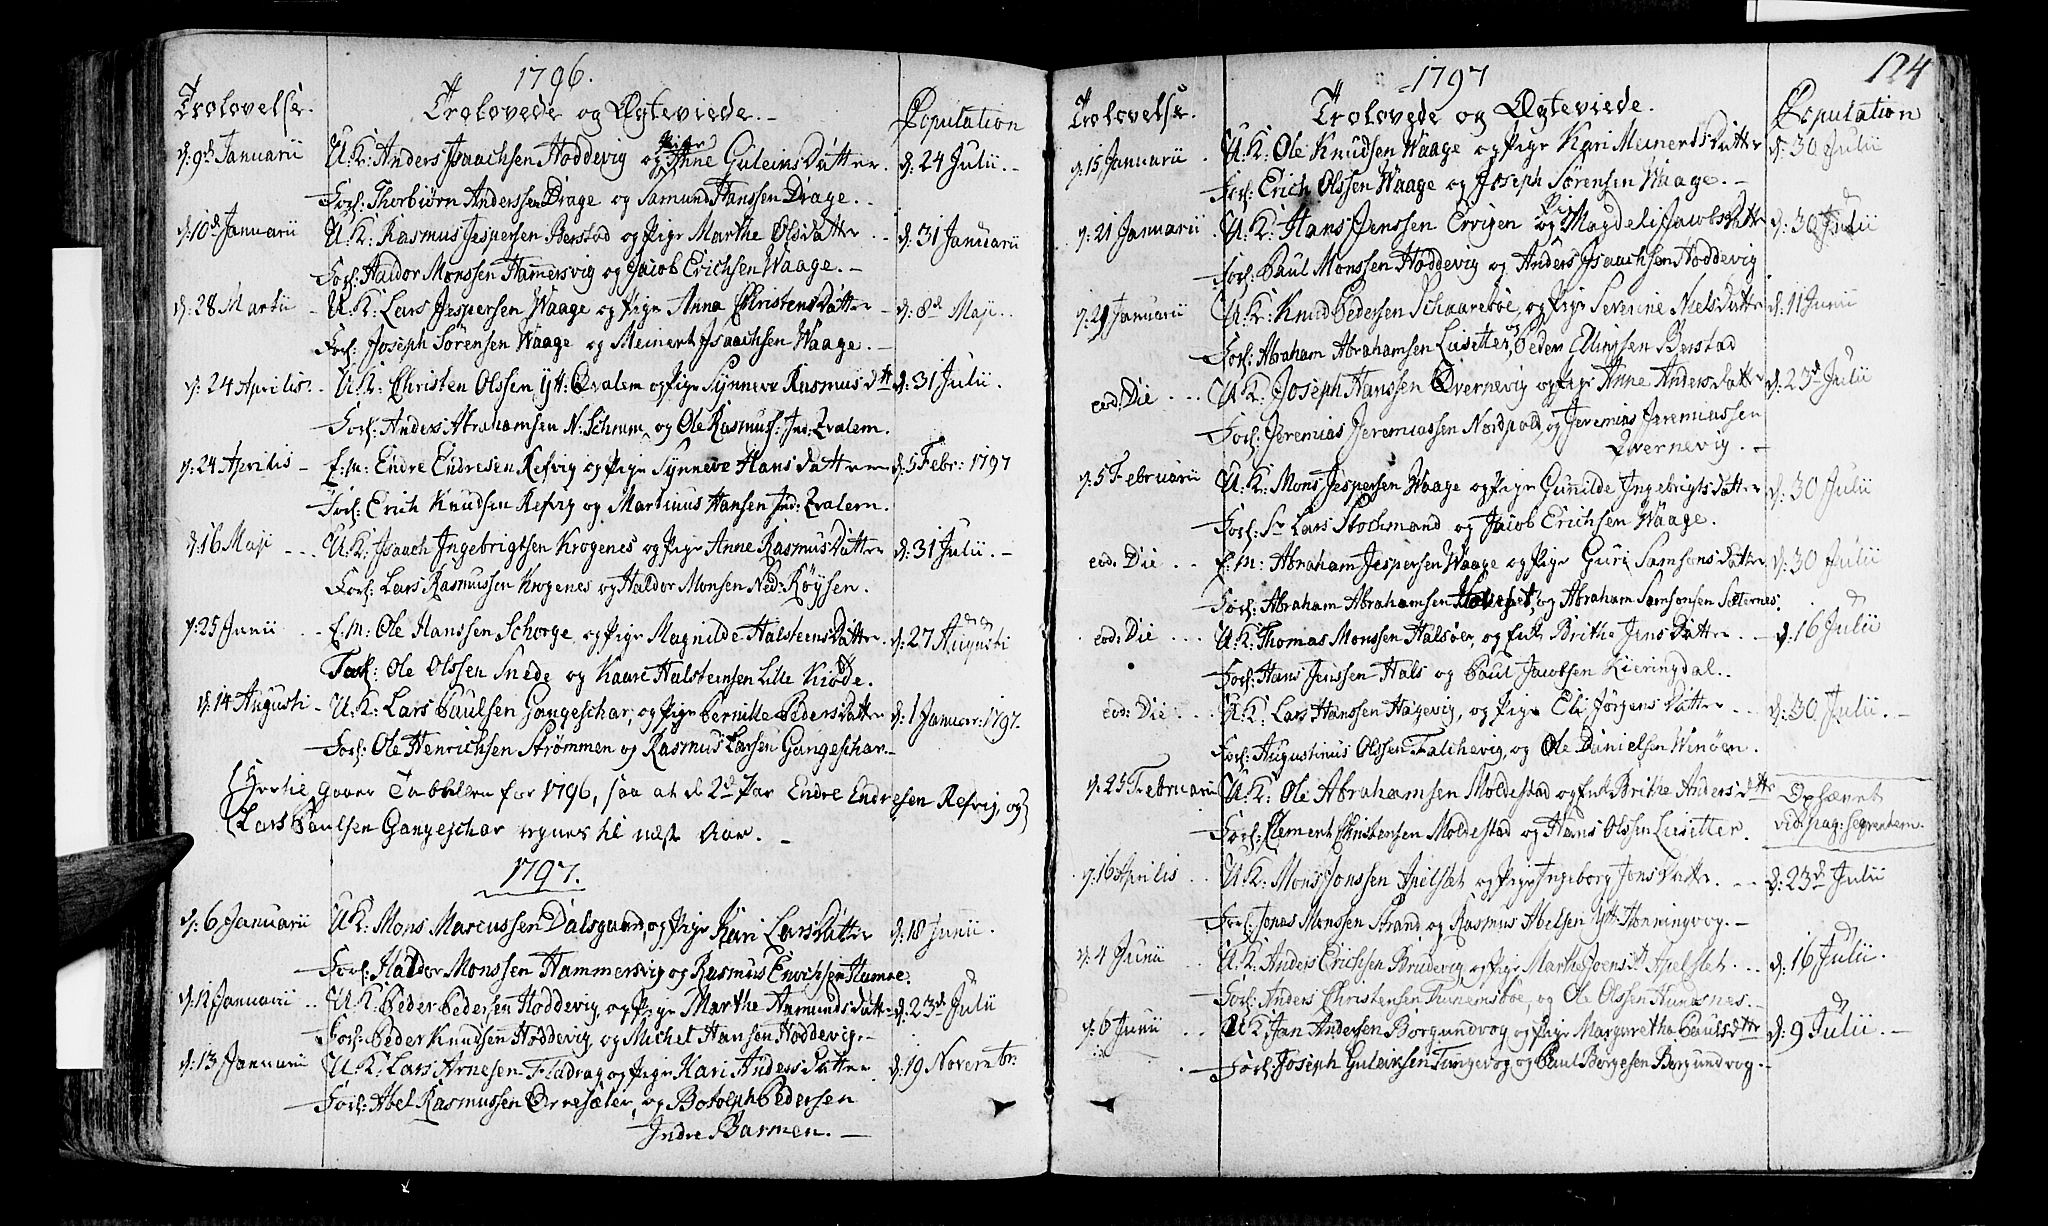 1796.
Trolovelse. Trolovede og Ægteviede. Copulation
d: 9d Januarii U: K: Anders Isaachsen Hoddevig og Pige Anne GuleinsDatter. d: 24 Julii.
Forl: Thorbiørn Anderssen Drage og Samund Hanssen Drage.
d: 10d Januarii U: K: Rasmus Jespersen Berstad og Pige Marthe OlsDatter d: 31 Januarii
Forl: Haldor Monssen Hamersvig og Jacob Erichsen Waage.
d: 28 Martii U: K: Lars Jespersen Waage og Pige Anna ChristensDatter d: 8d Maji
Forl: Joseph Sørensen Waage og Meinert Isaachsen Waage.
d: 24 Aprilis U: K: Christen Olssen Ytt: Qvalem og Pige Synneve Rasmusdtt d: 31 Julii.
Forl: Anders Abrahamsen N: Schram og Ole Rasmuss: Ind: Qvalem.
d: 24 Aprilis E: M: Endre Endresen Refvig og Pige Synneve HansDatter d: 5 Febr: 1797
Forl: Erich Knudsen Refvig og Martinus Hansen Ind: Qvalem.
d: 16 Maji U: K: Isaach Ingebrigtsen Krogenes og Pige Anne RasmusDatter d: 31 Julii.
Forl: Lars Rasmussen Krogenes og Haldor Monsen Ned: Røysen.
d: 25 Junii E: M: Ole Hanssen Schorge, og Pige Magnilde HalsteensDatter. d: 27 Augusti
Forl: Ole Olssen Snede og Kaare Halsteinsen Lille Kiøde.
d: 14 Augusti U: K: Lars Paulsen Gangeschar, og Pige Pernille PedersDatter d: 1 Januar: 1797.
Forl: Ole Henrichsen Strømmen og Rasmus Larsen Gangeschar.
Hertil gaaer Tabellen for 1796, saa at de 2de Par Endre Endresen Refvig, og
Lars Paulsen Gangeschar regnes til næst Aar.
1797.
d: 6 Januarii U: K: Mons Marcussen Dalsgaard, og Pige Kari LarsDatter d: 18 Junii.
Forl: Haldor Monssen Hammersvig og Rasmus Enochsen Humøe.
d: 12 Januarii U: K: Peder Pedersen Hoddevig, og Pige Marthe AamundsDatter d: 23d Julii
Forl: Peder Knudsen Hoddevig, og Michel Hansen Hoddevig.
d: 13 Januarii U: K: Lars Arnesen Fladrag og Pige Kari AndersDatter d: 19 Novembr:
Forl: Abel Rasmussen Ørnesæter, og Botolph Pedersen
Indre Barmen.
1797 124
Trolovelse. Trolovede og Ægteviede. Copulation
d: 15 Januarii U: K: Ole Knudsen Waage og Pige Kari MeinertsDatter d: 30 Julii
Forl: Erich Olssen Waage og Joseph Sørensen Waage.
d: 21 Januarii U: K: Hans Jenssen Ervigen og Pige Magdeli JacobsDatter d: 30 Julii
Forl: Paul Monssen Hoddevig og Anders Isaachsen Hoddevig
d: 29 Januarii U: K: Knud Pedersen Schaarebøe, og Pige Severine NielsDatter d: 11 Junii
Forl: Abraham Abrahamsen Liisetter, og Peder Ellingsen Berstad
eod: Die U: K: Joseph Hanssen Qvernevig og Pige Anne AndersDatter d: 23d Julii
Forl: Jeremias Jeremiassen Nordpold, og Jeremias Jeremiassen
Qvernevig.
d: 5 Februarii U: K: Mons Jespersen Waage og Pige Gunilde IngebrigtsDatter d: 30 Julii
Forl: Sr Lars Stochmand og Jacob Erichsen Waage.
eod: Die E: M: Abraham Jespersen Waage og Pige Guri SamsonsDatter d: 30 Julii
Forl: Abraham Abrahamsen og Abraham Samsonsen Setternes.
eod: Die U: K: Thomas Monssen Halsøer, og Enk: Brithe JensDatter d: 16 Julii
Forl: Hans Jenssen Hals og Paul Jacobsen Kieringdal.
eod: Die U: K: Lars Hanssen Hagevig, og Pige Eli JørgensDatter d: 30 Julii.
Forl: Augustinus Olssen Falchevig, og Ole Danielsen Winøen.
d: 25 Februarii U: K: Ole Abrahamsen Moldestad og Enk Brithe Andersdttr Ophævet
Forl: Clement Christensen Moldestad og Hans Olssen Liisetter. vid: pag: seqventem.
d: 16 Aprilis U: K: Mons Jonssen Apelset og Pige Ingeborg JonsDatter. d: 23d Julii
Forl: Jonas Monssen Strand og Rasmus Abelsen Ytt: Honningvog.
d: 4 Junii U: K: Anders Erichsen Brudevig og Pige Marthe Joensdt Apelset d: 16 Julii.
Forl: Anders Christensen Tunemsbøe, og Ole Olssen Hundsnes.
d: 6 Junii U: K: Jan Andersen Borgundvog og Pige Margaretha Paulsdttr d: 9 Julii.
Forl: Joseph Guleiksen Tungevog og Paul Børgesen Borgundvog.